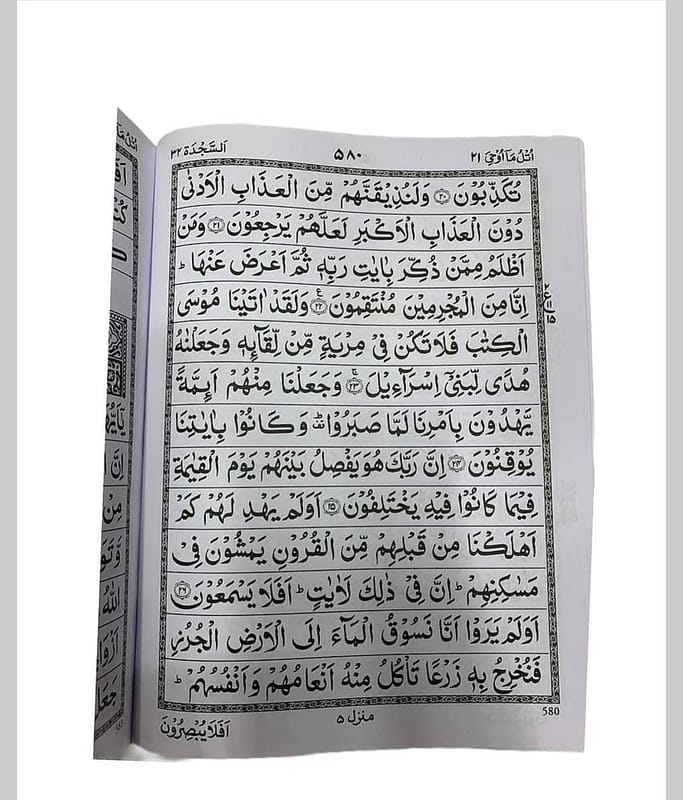 اُتْلُ مَآ اُوْحِیَ ٢١
٥٨٠
اَلسَّجْدَة ٣٢
تُكَذِّبُوْنَ ۝٢٠ وَلَنُذِيْقَنَّهُمْ مِّنَ الْعَذَابِ الْاَدْنٰى
دُوْنَ الْعَذَابِ الْاَكْبَرِ لَعَلَّهُمْ يَرْجِعُوْنَ ۝٢١ وَمَنْ
اَظْلَمُ مِمَّنْ ذُكِّرَ بِاٰيٰتِ رَبِّهٖ ثُمَّ اَعْرَضَ عَنْهَا ؕ
اِنَّا مِنَ الْمُجْرِمِيْنَ مُنْتَقِمُوْنَ ۝٢٢ وَلَقَدْ اٰتَيْنَا مُوْسَى
الْكِتٰبَ فَلَا تَكُنْ فِيْ مِرْيَةٍ مِّنْ لِّقَآئِهٖ وَجَعَلْنٰهُ
هُدًى لِّبَنِيْٓ اِسْرَآءِيْلَ ۝٢٣ وَجَعَلْنَا مِنْهُمْ اَئِمَّةً
يَّهْدُوْنَ بِاَمْرِنَا لَمَّا صَبَرُوْا ؕ وَكَانُوْا بِاٰيٰتِنَا
يُوْقِنُوْنَ ۝٢٤ اِنَّ رَبَّكَ هُوَ يَفْصِلُ بَيْنَهُمْ يَوْمَ الْقِيٰمَةِ
فِيْمَا كَانُوْا فِيْهِ يَخْتَلِفُوْنَ ۝٢٥ اَوَلَمْ يَهْدِ لَهُمْ كَمْ
اَهْلَكْنَا مِنْ قَبْلِهِمْ مِّنَ الْقُرُوْنِ يَمْشُوْنَ فِيْ
مَسٰكِنِهِمْ ؕ اِنَّ فِيْ ذٰلِكَ لَاٰيٰتٍ ؕ اَفَلَا يَسْمَعُوْنَ ۝٢٦
اَوَلَمْ يَرَوْا اَنَّا نَسُوْقُ الْمَآءَ اِلَى الْاَرْضِ الْجُرُزِ
فَنُخْرِجُ بِهٖ زَرْعًا تَاْكُلُ مِنْهُ اَنْعَامُهُمْ وَاَنْفُسُهُمْ ؕ
منزل ٥
580
اَفَلَا يُبْصِرُوْنَ